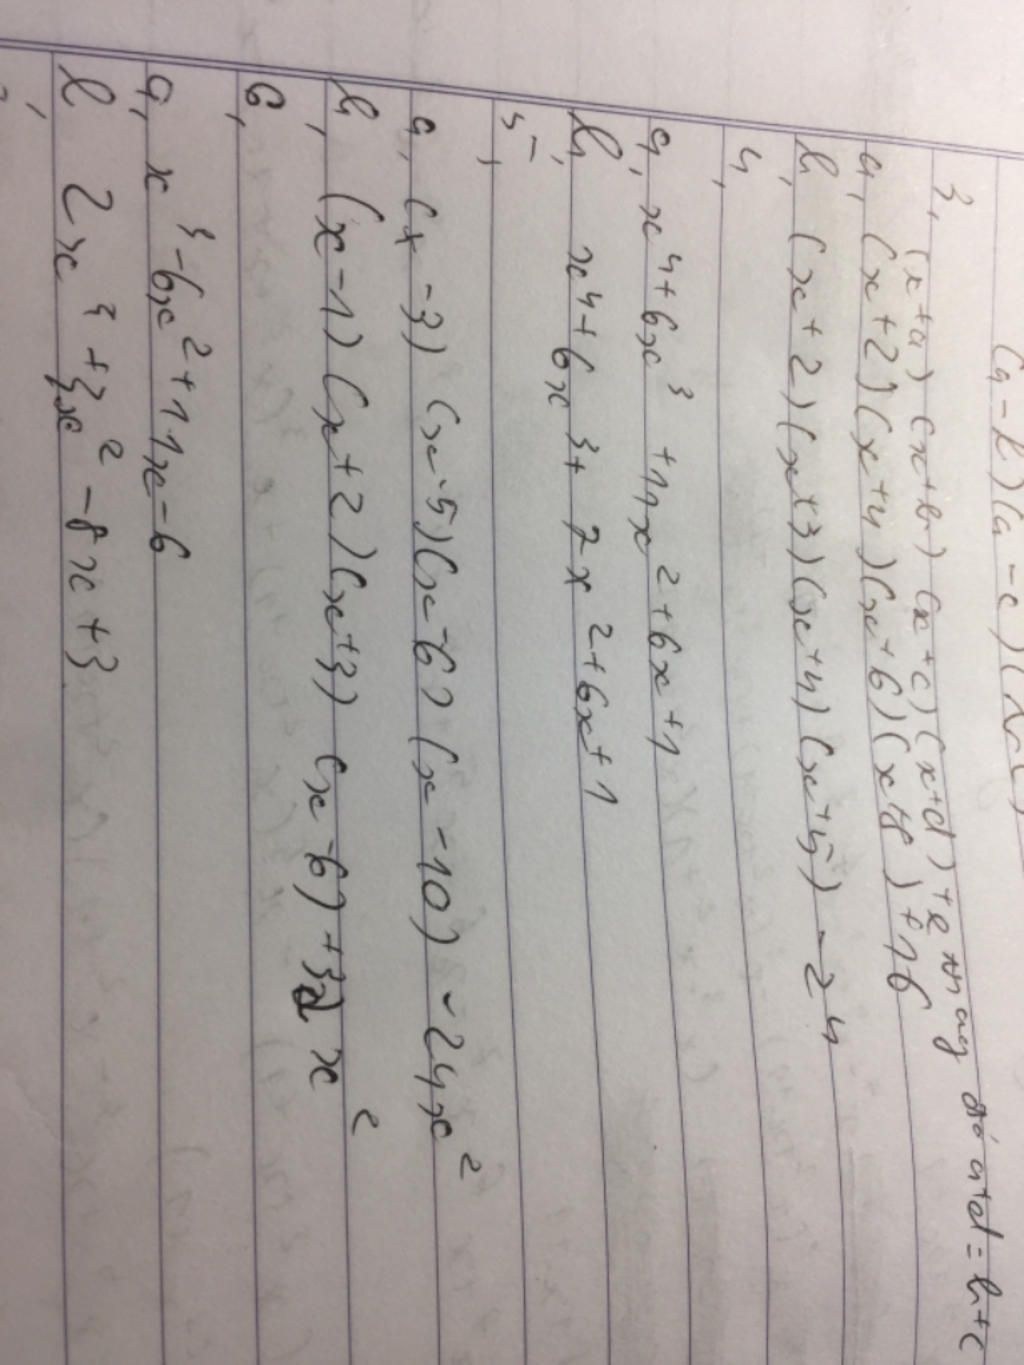 (a-b)(a-c)(
3, (x+a)(x+b)(x+c)(x+d)+e đó a+d=b+c
a, (x+2)(x+4)(x+6)(x+8)+16
b, (x+2)(x+3)(x+4)(x+5)-24
4,
a, x⁴+6x³+11x²+6x+1
b, x⁴+6x³+7x²+6x+1
5,
a, (x-3)(x-5)(x-6)(x-10)-24x²
b, (x-1)(x+2)(x+3)(x-6)+32x²
6,
a, x³-6x²+11x-6
b 2x³+3x²-8x+3